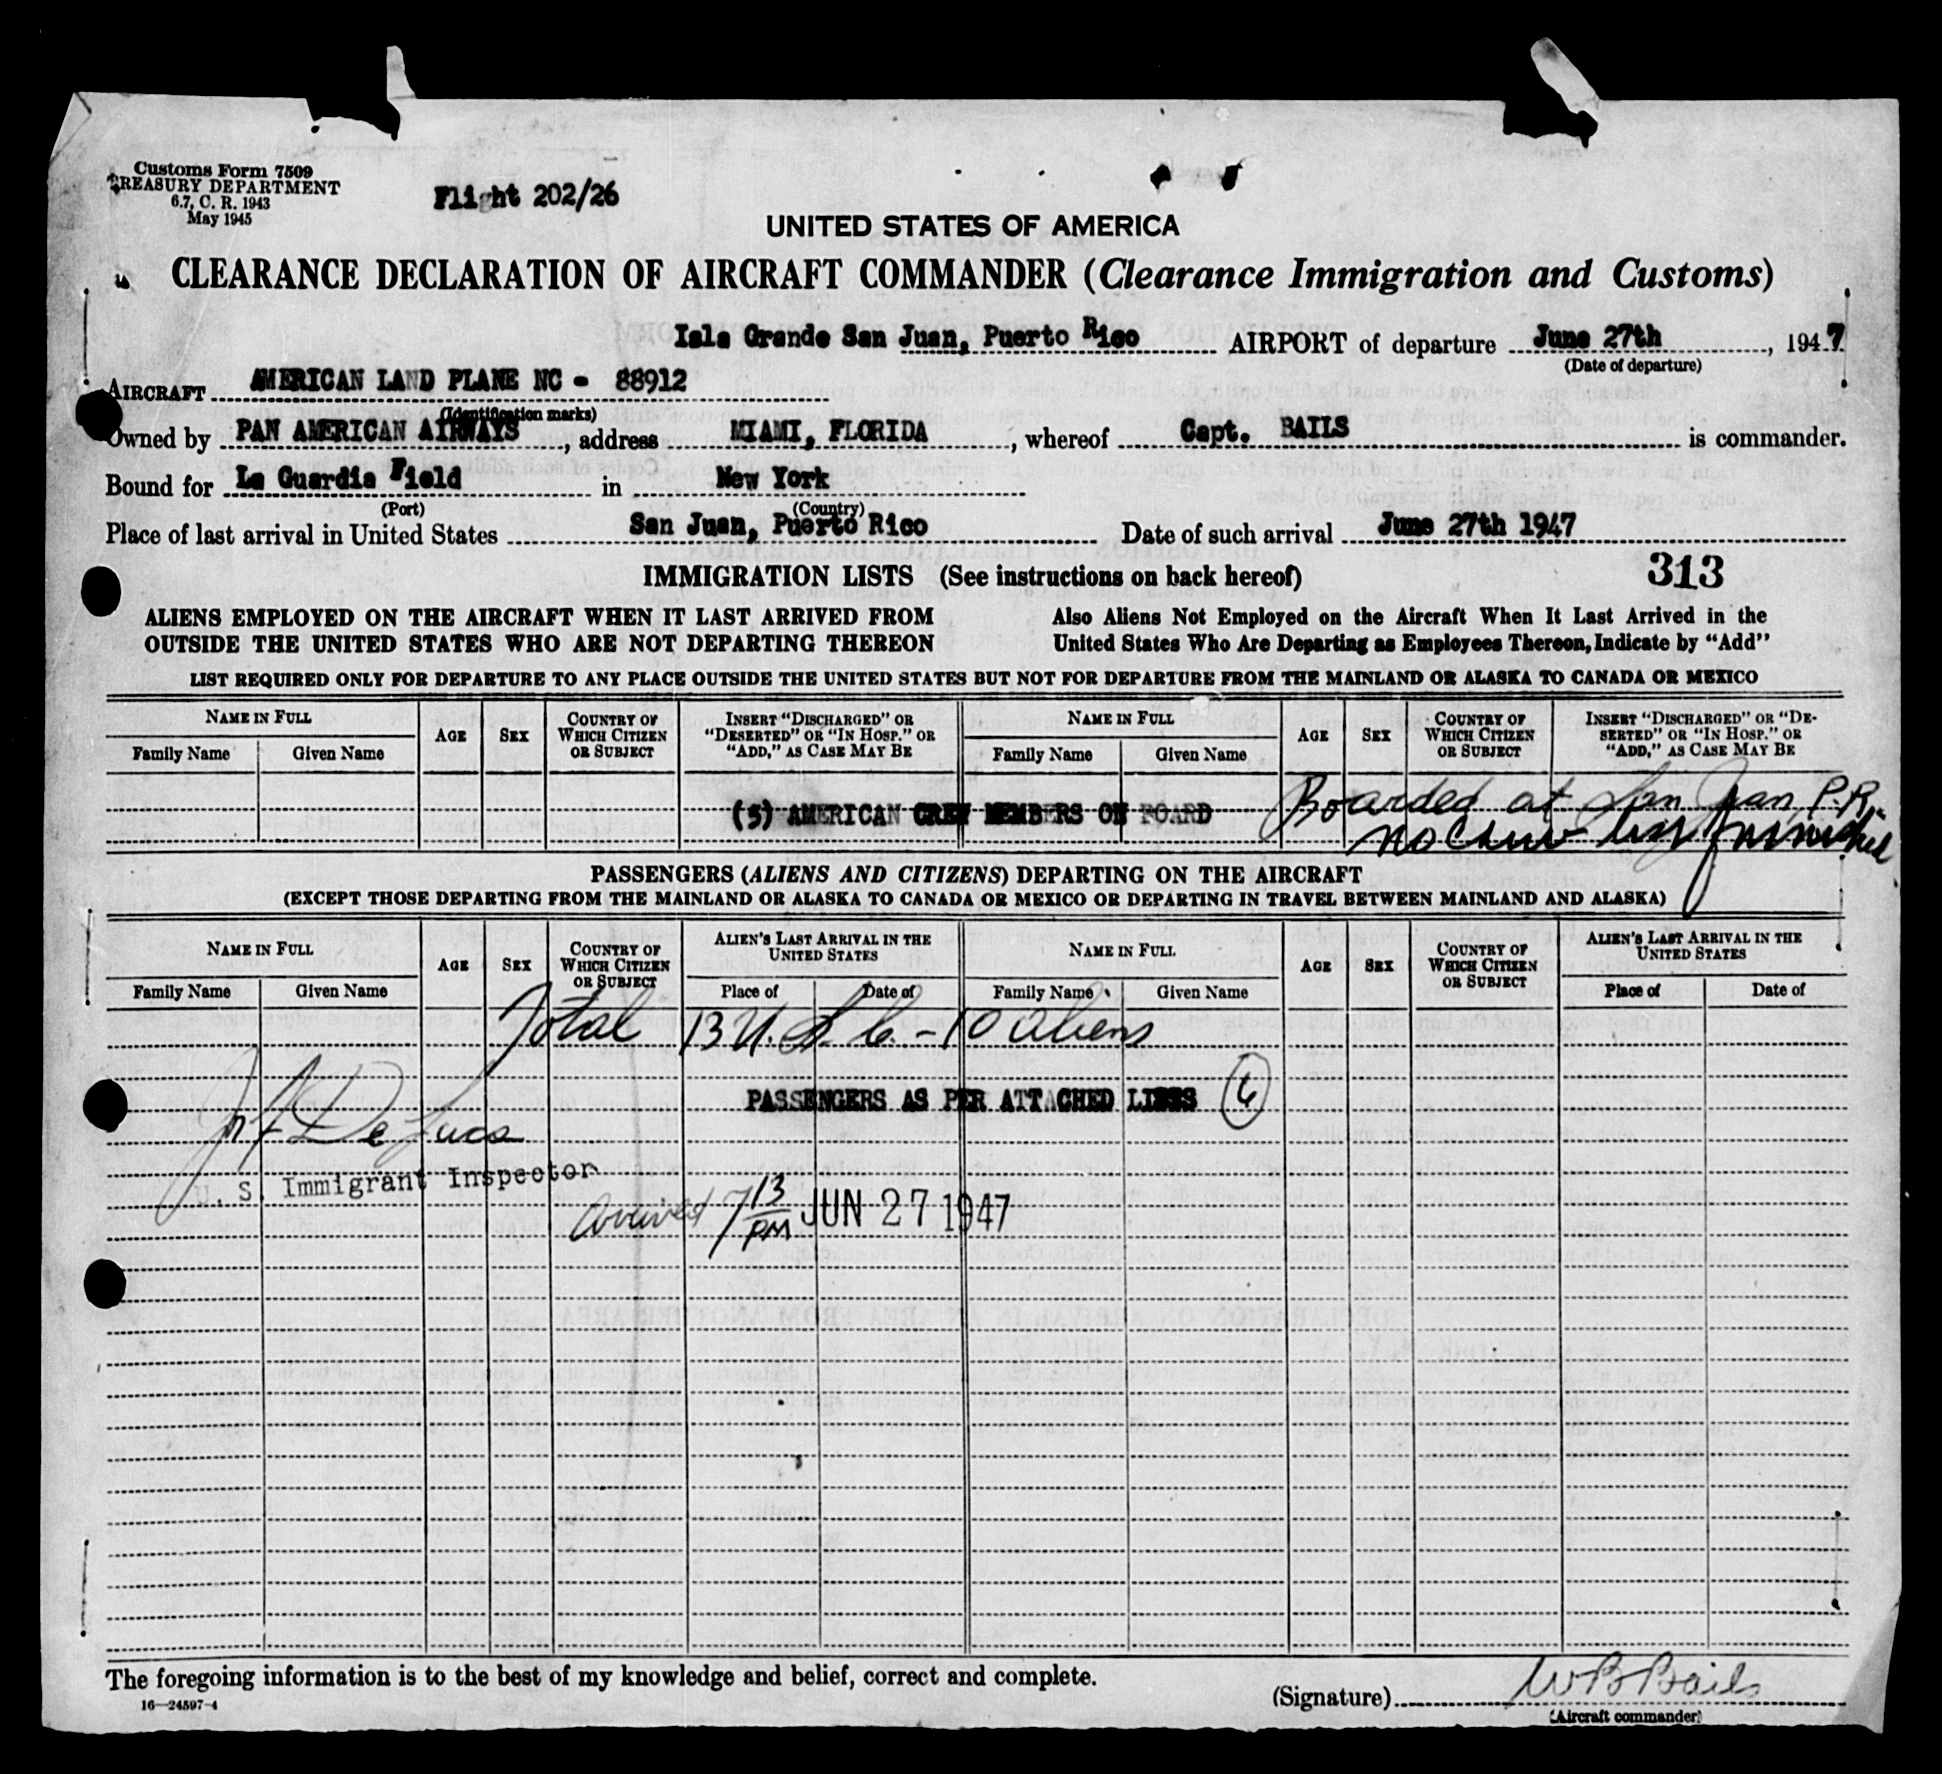 Customs Form 7509
TREASURY DEPARTMENT
6.7, C. R. 1943
May 1945
Flight 202/26
UNITED STATES OF AMERICA
CLEARANCE DECLARATION OF AIRCRAFT COMMANDER (Clearance Immigration and Customs)
Isla Grande San Juan, Puerto Rico AIRPORT of departure June 27th, 1947
(Date of departure)
AIRCRAFT AMERICAN LAND PLANE NC - 88912
(Identification marks)
Owned by PAN AMERICAN AIRWAYS, address MIAMI, FLORIDA, whereof Capt. BAILS is commander.
Bound for La Guardia Field in New York
(Port) (Country)
Place of last arrival in United States San Juan, Puerto Rico Date of such arrival June 27th 1947
IMMIGRATION LISTS (See instructions on back hereof) 313
ALIENS EMPLOYED ON THE AIRCRAFT WHEN IT LAST ARRIVED FROM
OUTSIDE THE UNITED STATES WHO ARE NOT DEPARTING THEREON
Also Aliens Not Employed on the Aircraft When It Last Arrived in the
United States Who Are Departing as Employees Thereon, Indicate by "Add"
LIST REQUIRED ONLY FOR DEPARTURE TO ANY PLACE OUTSIDE THE UNITED STATES BUT NOT FOR DEPARTURE FROM THE MAINLAND OR ALASKA TO CANADA OR MEXICO
NAME IN FULL
Family Name Given Name
AGE
SEX
COUNTRY OF
WHICH CITIZEN
OR SUBJECT
INSERT "DISCHARGED" OR
"DESERTED" OR "IN HOSP." OR
"ADD," AS CASE MAY BE
NAME IN FULL
Family Name Given Name
AGE
SEX
COUNTRY OF
WHICH CITIZEN
OR SUBJECT
INSERT "DISCHARGED" OR "DE-
SERTED" OR "IN HOSP." OR
"ADD," AS CASE MAY BE
(5) AMERICAN CREW MEMBERS ON BOARD
Boarded at San Juan, P.R.
no crew list furnished
PASSENGERS (ALIENS AND CITIZENS) DEPARTING ON THE AIRCRAFT
(EXCEPT THOSE DEPARTING FROM THE MAINLAND OR ALASKA TO CANADA OR MEXICO OR DEPARTING IN TRAVEL BETWEEN MAINLAND AND ALASKA)
NAME IN FULL
Family Name Given Name
AGE
SEX
COUNTRY OF
WHICH CITIZEN
OR SUBJECT
ALIEN'S LAST ARRIVAL IN THE
UNITED STATES
Place of Date of
NAME IN FULL
Family Name Given Name
AGE
SEX
COUNTRY OF
WHICH CITIZEN
OR SUBJECT
ALIEN'S LAST ARRIVAL IN THE
UNITED STATES
Place of Date of
Total 13 U.S.C. - 10 aliens
PASSENGERS AS PER ATTACHED LISTS 6
De Luca
U. S. Immigrant Inspector
arrived 7 13 PM JUN 27 1947
The foregoing information is to the best of my knowledge and belief, correct and complete.
16—24597-4
(Signature) WB Bails
(Aircraft commander)